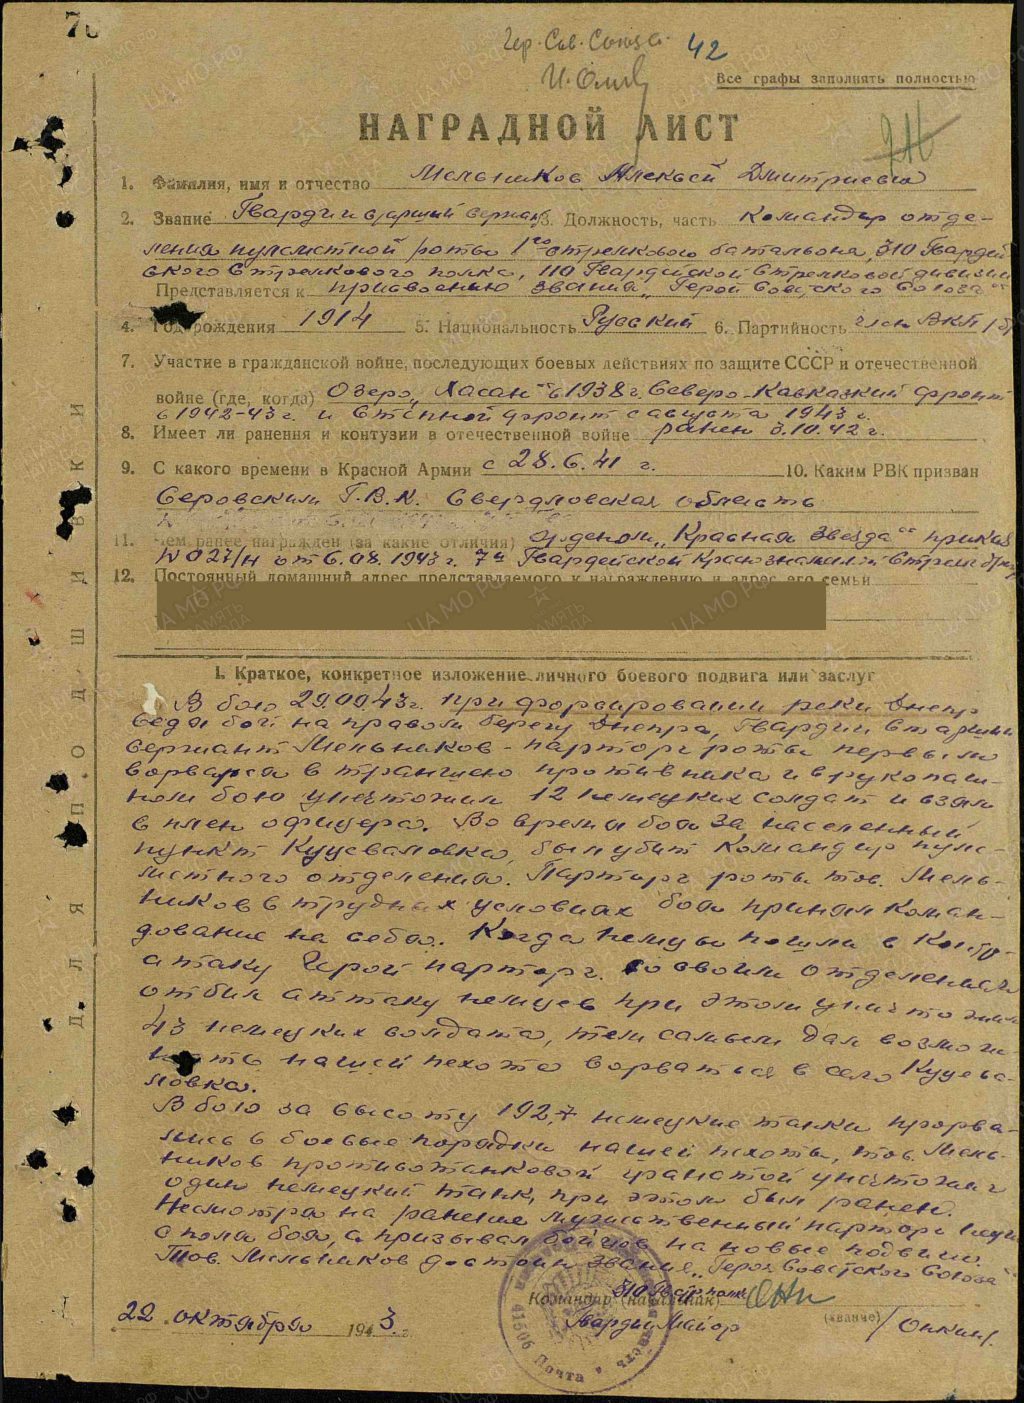 Гер. Сов. Союза 42
Все графы заполнять полностью
НАГРАДНОЙ ЛИСТ
1. Фамилия, имя и отчество Мельников Алексей Дмитриевич
2. Звание Гвардии старший сержант 3. Должность, часть Командир отде-
ления пулеметной роты 1го стрелкового батальона, 310 Гвардей
ского Стрелкового полка, 110 Гвардейской Стрелковой дивизии
Представляется к присвоению звания „Герой Советского Союза“
4. Год рождения 1914 5. Национальность Русский 6. Партийность член ВКП(б)
7. Участие в гражданской войне, последующих боевых действиях по защите СССР и отечественной
войне (где, когда) Озеро „Хасан“ в 1938 г. Северо-Кавказкий фронт
в 1942-43 г. и Степной фронт с августа 1943 г.
8. Имеет ли ранения и контузии в отечественной войне ранен 3.10.42 г.
9. С какого времени в Красной Армии с 28.6.41 г. 10. Каким РВК призван
Серовским Г.В.К. Свердловская область
11. Чем ранее награжден (за какие отличия) орденом „Красная Звезда“ приказ
№ 027/н от 6.08.1943 г. 7й Гвардейской Краснознамен. Стрелк. бриг
12. Постоянный домашний адрес представляемого к награждению и адрес его семьи
I. Краткое, конкретное изложение личного боевого подвига или заслуг
В бою 29.09.43г. при форсировании реки Днепр
ведя бой на правом берегу Днепра, Гвардии старший
сержант Мельников - парторг роты первым
ворвался в траншею противника и в рукопаш-
ном бою уничтожил 12 немецких солдат и взял
в плен офицера. Во время боя за населенный
пункт Куцеваловка, был убит командир пуле-
метного отделения. Парторг роты тов. Мель-
ников в трудных условиях боя принял коман-
дование на себя. Когда немцы пошли в контр-
атаку Герой парторг со своим отделением
отбил аттаку немцев при этом уничтожил
43 немецких солдата, тем самым дал возмож-
ность нашей пехоте ворваться в село Куцева-
ловка.
В бою за высоту 192,7 немецкие танки прорва-
лись в боевые порядки нашей пехоты, тов. Мель-
ников противотанковой гранатой уничтожил
один немецкий танк, при этом был ранен.
Несмотря на ранение мужественный парторг
с поля боя, а призывал бойцов на новые подвиги.
Тов. Мельников достоин звания „Героя Советского Союза“
Командир (начальник) 310 Гв. стр. полка
Гвардии Майор (звание) /Онкин/
22 октября 1943 г.
41506 Почта
ДЛЯ ПОДШИВКИ
ЦА МО РФ
ПАМЯТЬ НАРОДА